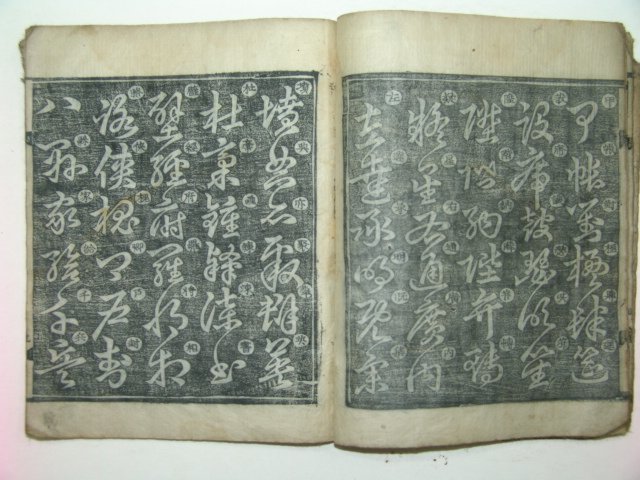 甲帳對楹肆筵
設席鼓瑟吹笙
陞階納陛弁轉
疑星右通廣內
左達承明既集
墳典亦聚群英
杜稿鍾隸漆書
壁經府羅將相
路俠槐卿戶封
八縣家給千兵